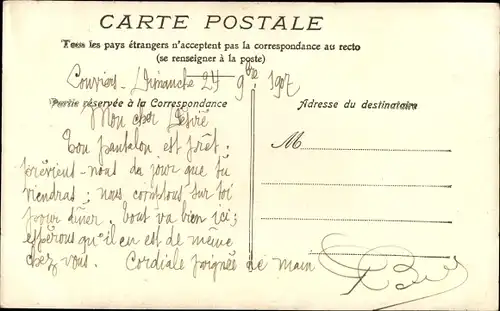 CARTE POSTALE
Tous les pays étrangers n'acceptent pas la correspondance au recto
(se renseigner à la poste)
Louviers - Dimanche 24 9bre 1907
Partie réservée à la Correspondance
Adresse du destinataire
Mon cher Désiré
Ton pantalon est prêt.
préviens-nous du jour que tu
viendras ; nous comptons sur toi
pour dîner. Tout va bien ici ;
espérons qu'il en est de même
chez vous. Cordiale poignée de main
M